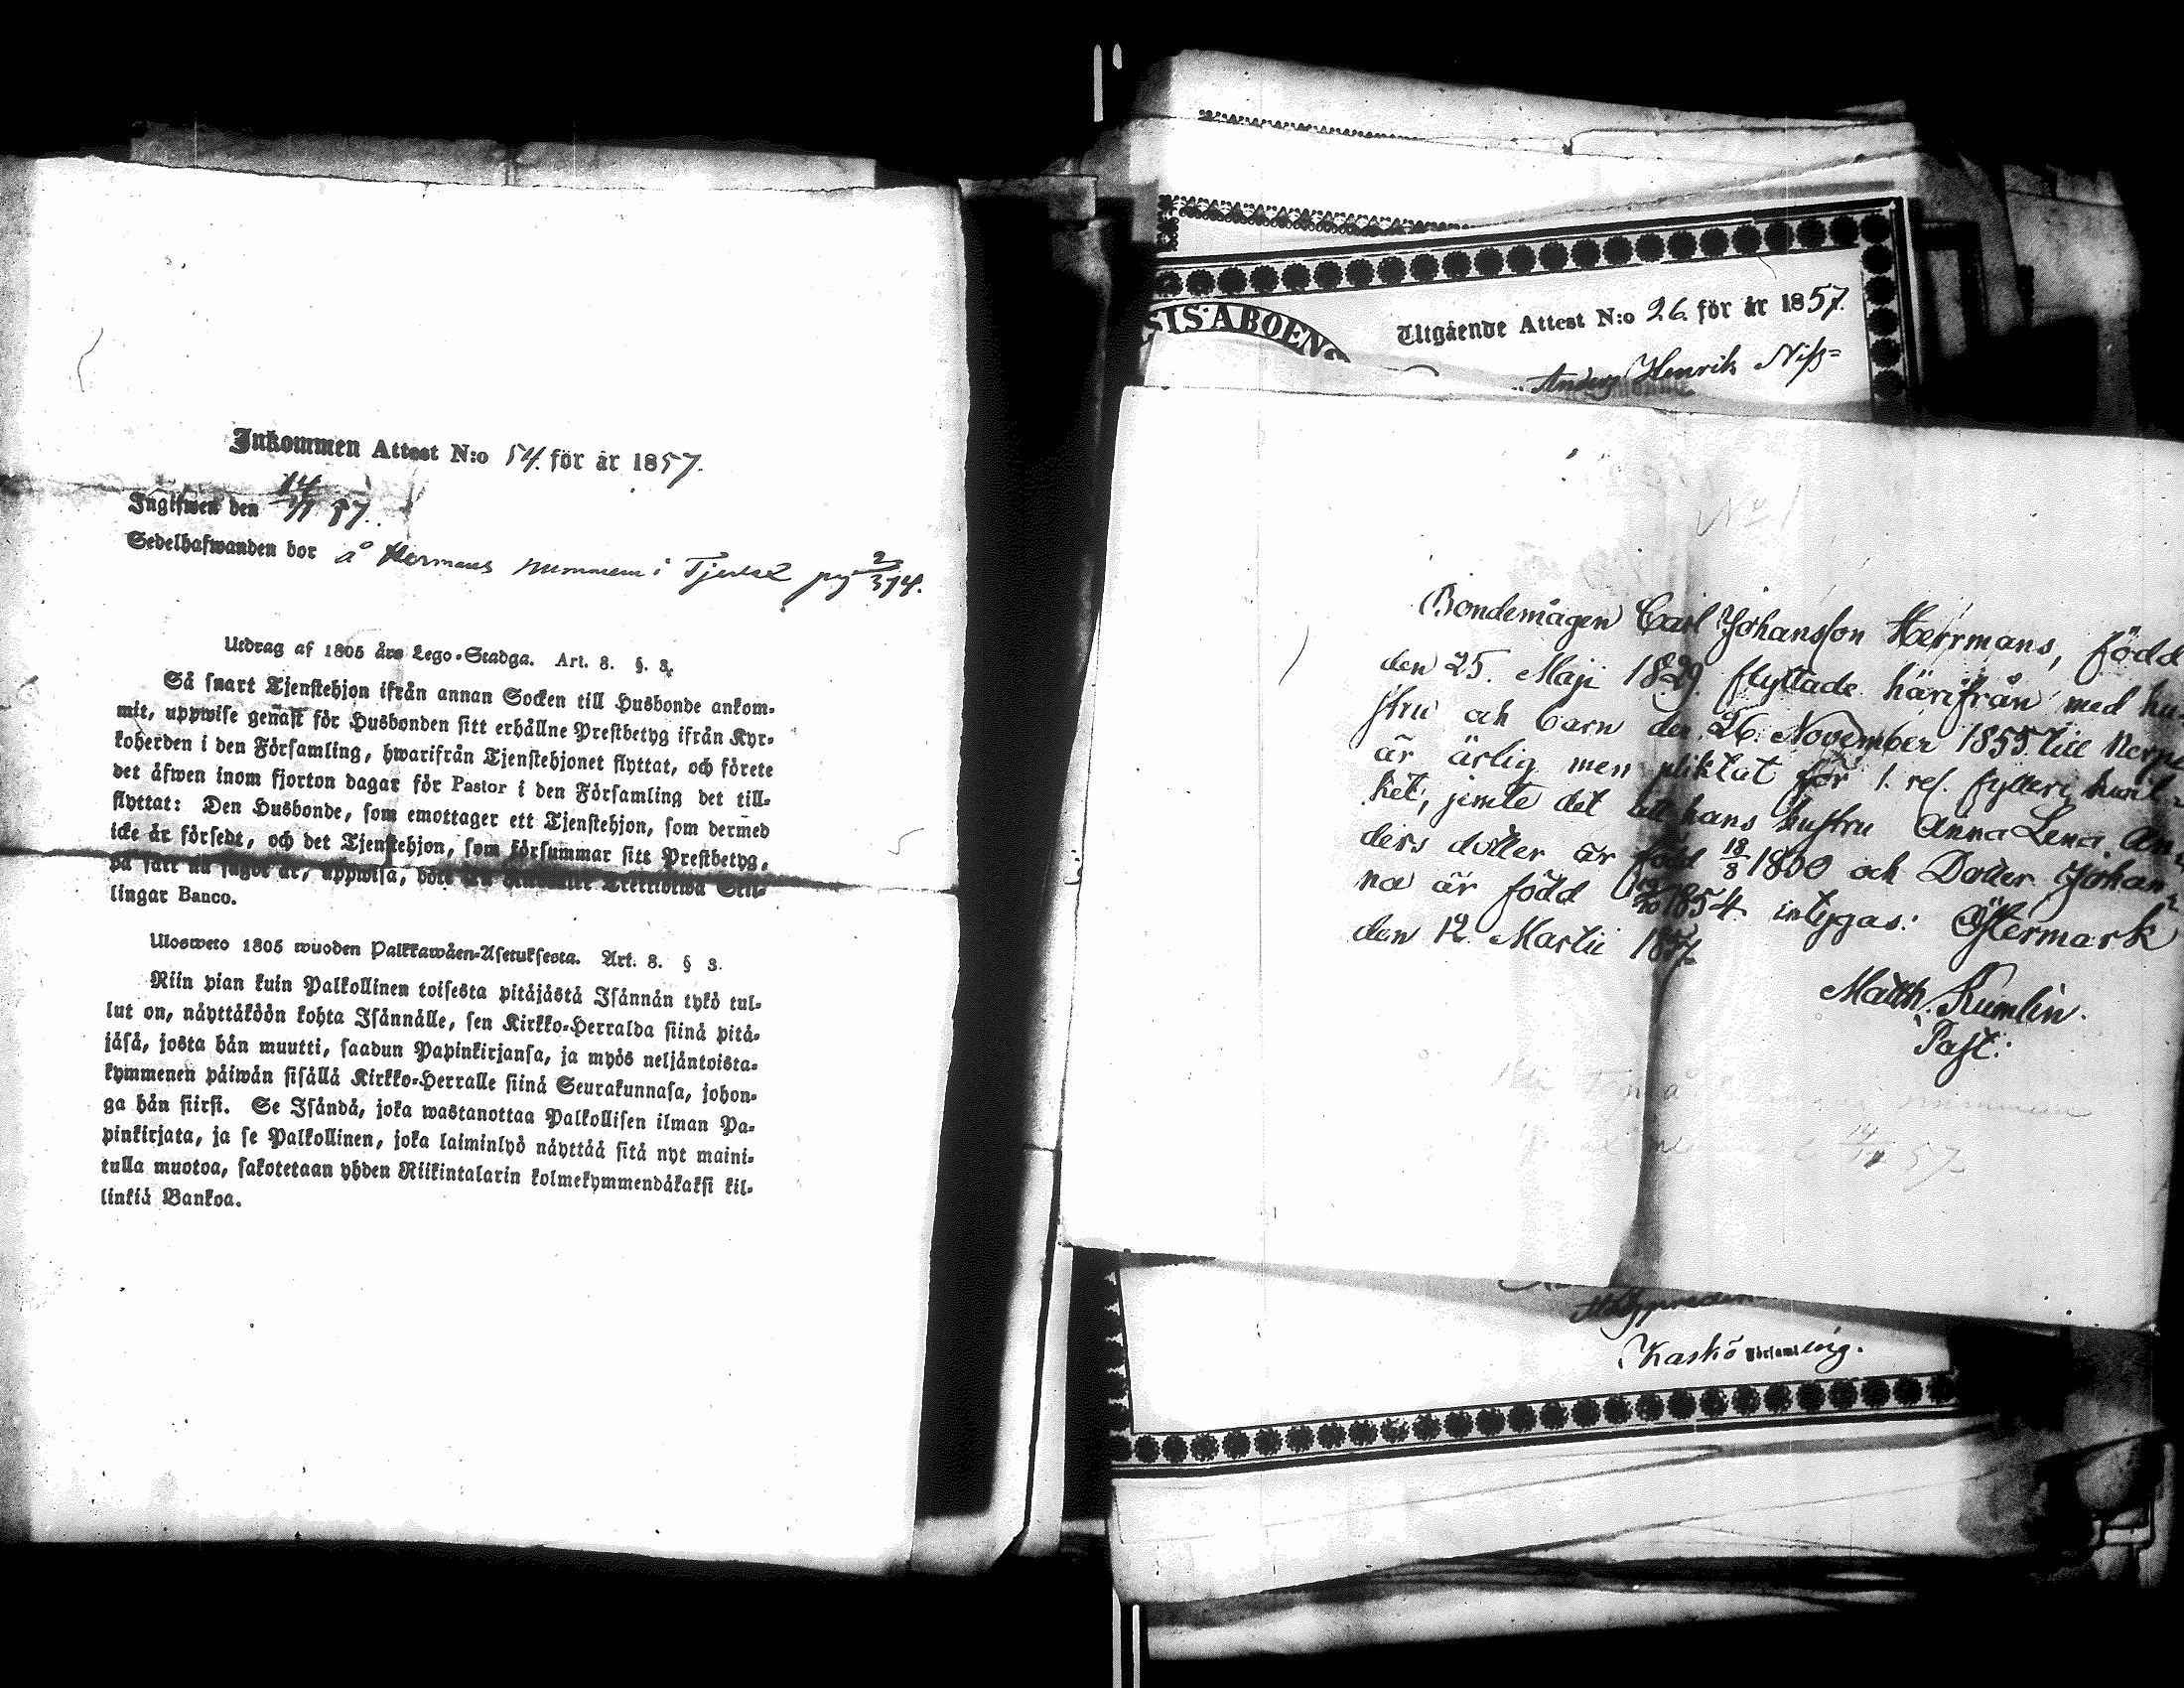 Inkommen Attest N:o 54. för år 1857.
Ingifwen den 14/11 57.
Sedelhafwanden bor å Hermans hemman i Tjerlax pag 2/374.
Utdrag af 1805 års Lego-Stadga. Art. 8. §. 3.
Så snart Tjenstehjon ifrån annan Socken till Husbonde ankom-
mit, uppwise genast för Husbonden sitt erhållne Prestbetyg ifrån Kyr-
koherden i den Församling, hwarifrån Tjenstehjonet flyttat, och förete
det äfwen inom fjorton dagar för Pastor i den Församling det till-
flyttat: Den Husbonde, som emottager ett Tjenstehjon, som dermed
icke är försedt, och det Tjenstehjon, som försummar sitt Prestbetyg,
på sätt nu sagdt är, uppwisa, böte Skil-
lingar Banco.
Ulosweto 1805 wuoden Palkkawäen-Asetuksesta. Art. 8. § 3.
Niin pian kuin Palkollinen toisesta pitäjästä Isännän tykö tul-
lut on, näyttäköön kohta Isännälle, sen Kirkko-Herralda siinä pitä-
jäsä, josta hän muutti, saadun Papinkirjansa, ja myös neljäntoista-
kymmenen päiwän sisällä Kirkko-Herralle siinä Seurakunnasa, johon-
ga hän siirsi. Se Isändä, joka wastanottaa Palkollisen ilman Pa-
pinkirjata, ja se Palkollinen, joka laiminlyö näyttää sitä nyt maini-
tulla muotoa, sakotetaan yhden Riikintalarin kolmekymmendäkaksi kil-
linkiä Bankoa.
SIS ABOENS
Utgående Attest N:o 26. för år 1857.
Anders Henrik Niss=
Bondemågen Carl Johansson Herrmans, född
den 25. Maji 1829. flyttade härifrån med hu-
stru och barn den 26. November 1855. till Nerpes
är ärlig men pliktat för 1. res. fylleri,
het, jemte det att hans hustru Anna Lena An-
ders dotter är född 18/3 1800 och Dotter Johan-
na är född 1854 intygas: Östermark
den 12 Martii 1857
Matth. Kumlin.
Past:
hemman
14/11 57
Kaskö Församling.